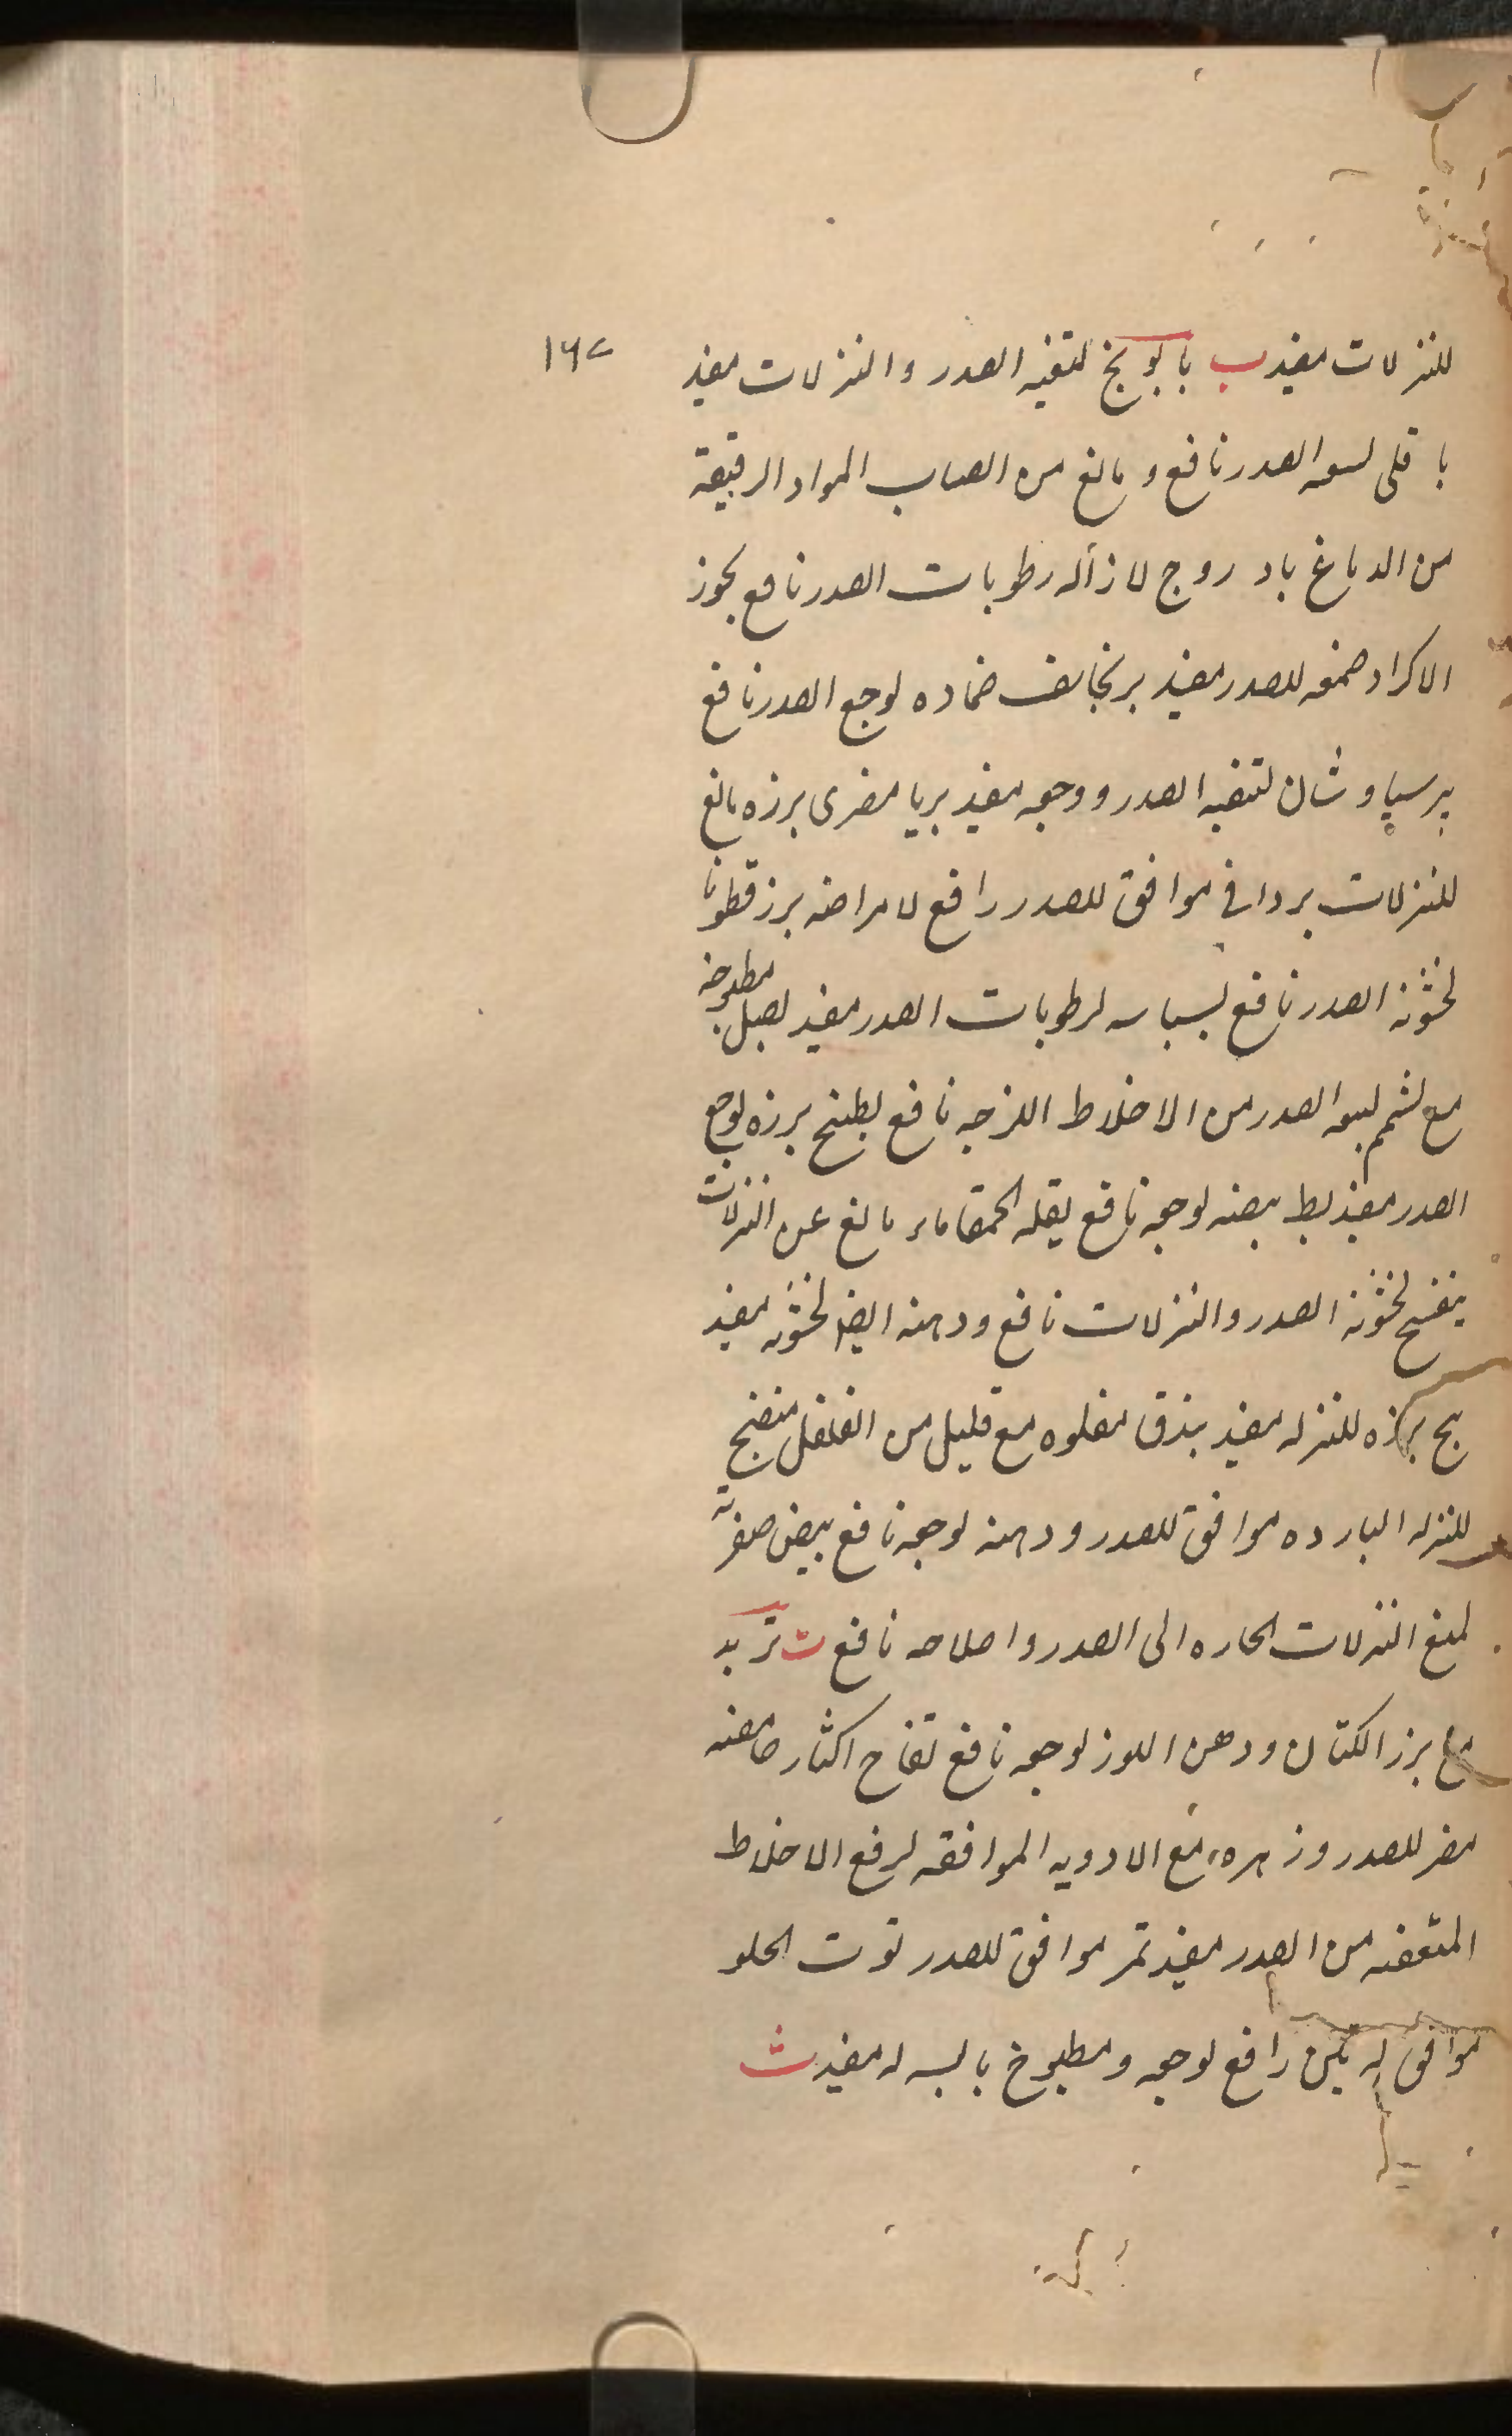 للنزلات مفید ب بابونج لتنقیه الصدر والنزلات مفید
۱۶۲
باقلی لسعه الصدر نافع و مانع من انصباب المواد الرقیقة
من الدماغ بادروج لازاله رطوبات الصدر نافع بجوز
الاکراد صمغه للصدر مفید برنجاسف ضماده لوجع الصدر نافع
برسیاوشان لتنقیه الصدر ووجعه مفید بربا مصری برزه مانع
للنزلات بردافی موافق للصدر رافع لامراضه برزقطونا
لخشونة الصدر نافع بسباسه لرطوبات الصدر مفید بصل مطبوخه
مع لشحم الصدر من الاخلاط اللزجه نافع بطیخ برزه لوجع
الصدر مفید بط بیضه لوجعه نافع بقله الحمقا ماء مانع عن النزلات
بنفسج لخشونة الصدر والنزلات نافع ودهنه ایضا لخشونه مفید
بنج برزه للنزله مفید بندق مغلوه مع قلیل من الفلفل منضج
للنزله البارده موافق للصدر ودهنه لوجعه نافع بیض صفرته
لمنع النزلات الحاره الی الصدر واصلاحه نافع ت تربد
مع برز الکتان ودهن اللوز لوجعه نافع تفاح اکثار حامضه
مضر للصدر وزهره مع الادویه الموافقه لرفع الاخلاط
المتعفنه من الصدر مفید تمر موافق للصدر توت الحلو
موافق له تین رافع لوجعه ومطبوخ یابسه له مفید ث